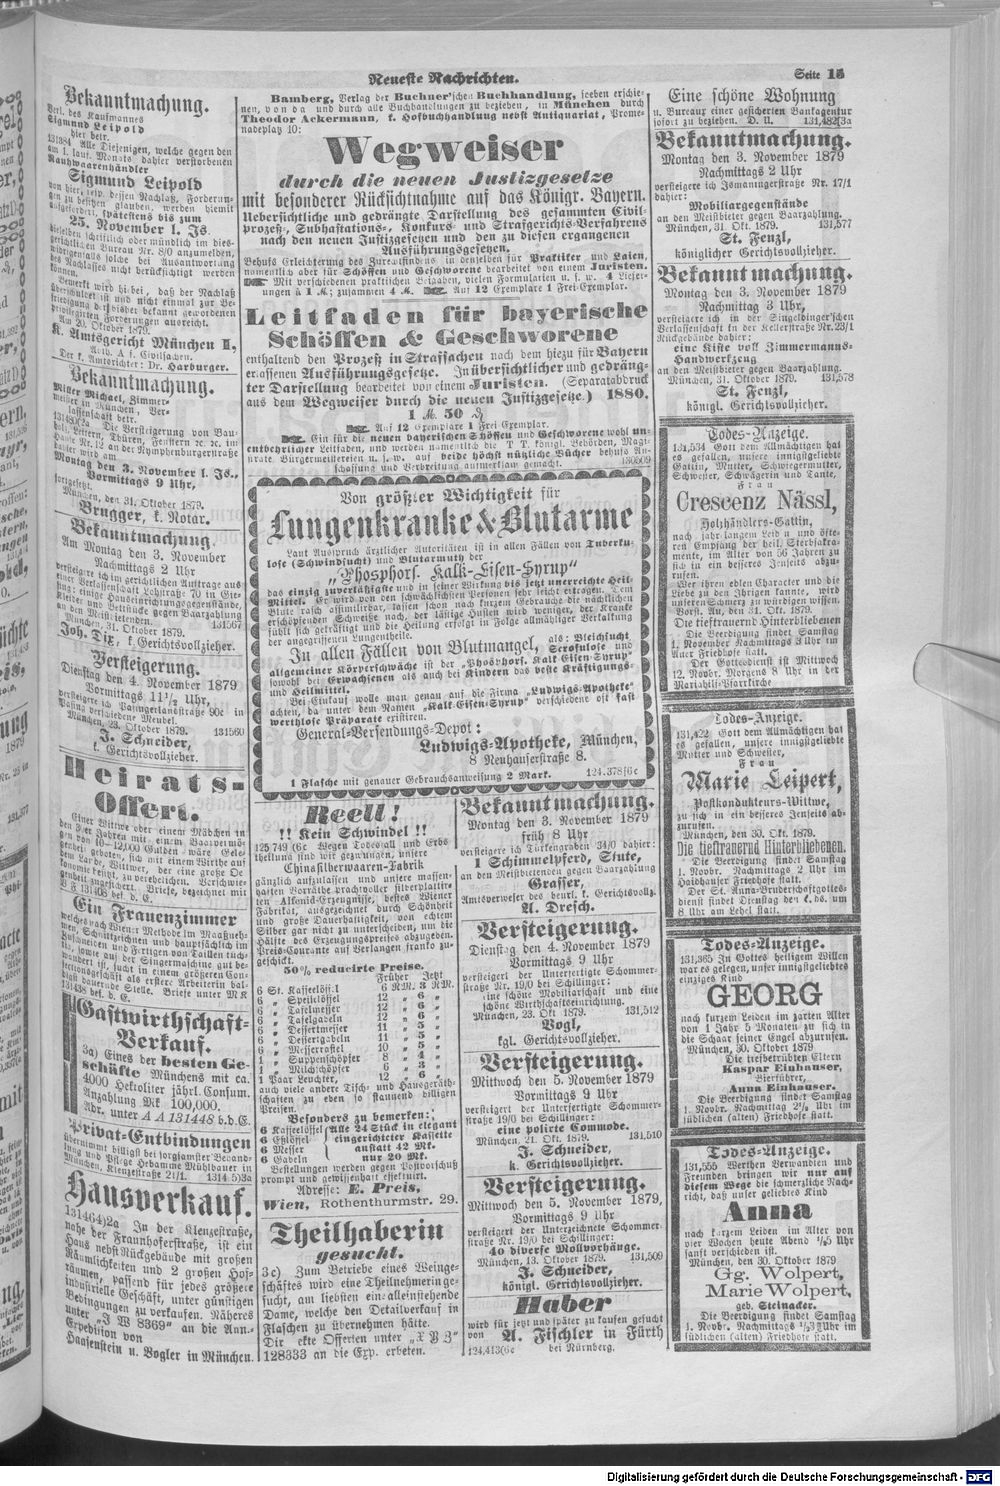 Neueste Nachrichten.
Seite 15
Bekanntmachung.
Verl. des Kaufmannes
Sigmund Leipold
hier betr.
131384 Alle Diejenigen, welche gegen den
am 1. lauf. Monats dahier verstorbenen
Rauhwaarenhändler
Sigmund Leipold
von hier, resp. dessen Nachlaß, Forderun-
gen zu besitzen glauben, werden hiemit
aufgefordert, spätestens bis zum
25. November l. Js.
dieselben schriftlich oder mündlich im dies-
gerichtlichen Bureau Nr. 8/0 anzumelden,
widrigenfalls solche bei Auseinandersetzung
des Nachlasses nicht berücksichtigt werden
können.
Bemerkt wird hiebei, daß der Nachlaß
überschuldet ist und nicht einmal zur Be-
friedigung der bisher bekannt gewordenen
privilegirten Forderungen ausreicht.
Am 20. Oktober 1879.
K. Amtsgericht München I,
Abth. A f. Civilsachen.
Der k. Amtsrichter: Dr. Harburger.
Bekanntmachung.
Miller Michael, Zimmer-
meister in München, Ver-
lassenschaft betr.
131480(2a Die Versteigerung von Bau-
holz, Leitern, Thüren, Fenstern ec. ec. im
Hause Nr. 12 an der Nymphenburgerstraße
hier wird am
Montag den 3. November l. Js.,
Vormittags 9 Uhr,
fortgesetzt.
München, den 31. Oktober 1879.
Brugger, k. Notar.
Bekanntmachung.
Am Montag den 3. November
Nachmittags 2 Uhr
versteigere ich im gerichtlichen Auftrage aus
einer Verlassenschaft Lohstraße 70 in Gie-
sing: einige Hauseinrichtungsgegenstände,
Kleider und Bettstücke gegen Baarzahlung
an den Meistbietenden.
München, 31. Oktober 1879. 131567
Joh. Dix, k. Gerichtsvollzieher.
Versteigerung.
Dienstag den 4. November 1879
Vormittags 11½ Uhr,
versteigere ich Baumgerlandstraße 90c in
Pasing verschiedene Meubel.
München, 23. Oktober 1879. 131560
J. Schneider,
k. Gerichtsvollzieher.
Heirats-
Offert.
Einer Wittwe oder einem Mädchen in
den 30er Jahren mit einem Baarvermö-
gen von 10—12,000 Gulden wäre Gele-
genheit geboten, sich mit einem Wirthe auf
dem Lande, Wittwer, der eine große Oe-
konomie besitzt, zu verehelichen. Verschwie-
genheit zugesichert. Briefe, bezeichnet mit
B F 131408 bef. d. E.
Ein Frauenzimmer
welches nach Wiener Methode im Maaßneh-
men, Schnittzeichnen und hauptsächlich im
Zuschneiden und Fertigen von Taillen tüch-
tig, sowie auf der Singermaschine gut be-
wandert ist, sucht in einem größeren Con-
fektionsgeschäft als erster Arbeiterin bal-
digst dauernde Stelle. Briefe unter M K
131438 bef. d. E.
Gastwirthschaft-
Verkauf.
3a) Eines der besten Ge-
schäfte Münchens mit ca.
4000 Hektoliter jährl. Consum.
Anzahlung Mk 100,000.
Adr. unter A A 131448 b. d. E.
Privat-Entbindungen
übernimmt billigst bei sorgsamster Behand-
lung und Pflege Hebamme Mühlbauer in
München, Klenzestraße 21/1. 1314 5)3a
Hausverkauf.
131464)2a In der Klenzestraße,
nahe der Fraunhoferstraße, ist ein
Haus nebst Rückgebäude mit großen
Räumlichkeiten und 2 großen Hof-
räumen, passend für jedes größere
industrielle Geschäft, unter günstigen
Bedingungen zu verkaufen. Näheres
unter „J W 8369" an die Ann.-
Expedition von
Haasenstein u. Vogler in München.
Bamberg, Verlag der Buchner'schen Buchhandlung, soeben erschie-
nen, von da und durch alle Buchhandlungen zu beziehen, in München durch
Theodor Ackermann, k. Hofbuchhandlung nebst Antiquariat, Prome-
nadeplatz 10:
Wegweiser
durch die neuen Justizgesetze
mit besonderer Rücksichtnahme auf das Königr. Bayern.
Uebersichtliche und gedrängte Darstellung des gesammten Civil-
prozeß-, Subhastations-, Konkurs- und Strafgerichts-Verfahrens
nach den neuen Justizgesetzen und den zu diesen ergangenen
Ausführungsgesetzen.
Behufs Erleichterung des Zurechtfindens in denselben für Praktiker und Laien,
namentlich aber für Schöffen und Geschworene bearbeitet von einem Juristen.
Mit verschiedenen praktischen Beigaben, vielen Formularien u. s. w. 4 Liefer-
ungen à 1 M; zusammen 4 M. Auf 12 Exemplare 1 Frei-Exemplar.
Leitfaden für bayerische
Schöffen & Geschworene
enthaltend den Prozeß in Strafsachen nach dem hiezu für Bayern
erlassenen Ausführungsgesetze. In übersichtlicher und gedräng-
ter Darstellung bearbeitet von einem Juristen. (Separatabdruck
aus dem Wegweiser durch die neuen Justizgesetze.) 1880.
1 M. 50 ₰
Auf 12 Exemplare 1 Frei Exemplar.
Ein für die neuen bayerischen Schöffen und Geschworene wohl un-
entbehrlicher Leitfaden, und werden namentlich die T. T. königl. Behörden, Magi-
strate Bürgermeistereien u. s. w. auf beide höchst nützliche Bücher behufs An-
schaffung und Verbreitung aufmerksam gemacht. 130509
Von größter Wichtigkeit für
Lungenkranke & Blutarme
Laut Ausspruch ärztlicher Autoritäten ist in allen Fällen von Tuberku-
lose (Schwindsucht) und Blutarmuth der
„Phosphors. Kalk-Eisen-Syrup"
das einzig zuverlässigste und in seiner Wirkung bis jetzt unerreichte Heil-
Mittel. Er wird von den schwächlichsten Personen sehr leicht ertragen. Dem
Blute rasch assimilirbar, lassen schon nach kurzem Gebrauche die nächtlichen
erschöpfenden Schweiße nach, der lästige Husten wird weniger, der Kranke
fühlt sich gekräftigt und die Heilung erfolgt in Folge allmäliger Verkalkung
der angegriffenen Lungentheile.
In allen Fällen von Blutmangel, als: Bleichsucht
Scrofulose und
allgemeiner Körperschwäche ist der „Phosphors. Kalk Eisen-Syrup"
sowohl bei Erwachsenen als auch bei Kindern das beste Kräftigungs-
und Heilmittel.
Bei Einkauf wolle man genau auf die Firma „Ludwigs-Apotheke"
achten, da unter dem Namen „Kalk-Eisen-Syrup" verschiedene oft fast
werthlose Präparate existiren.
General-Versendungs-Depot:
Ludwigs-Apotheke, München,
8 Neuhauserstraße 8.
1 Flasche mit genauer Gebrauchsanweisung 2 Mark. 124.378(6c
Reell!
!! Kein Schwindel !!
125 749 (6c Wegen Todesfall und Erbs
theilung sind wir gezwungen, unsere
Chinasilberwaaren-Fabrik
gänzlich aufzulassen und unsere massen-
haften Vorräthe prachtvoller silberplattir-
ter Alfenid-Erzeugnisse, bestes Wiener
Fabrikat, ausgezeichnet durch Schönheit
und große Dauerhaftigkeit, von echtem
Silber gar nicht zu unterscheiden, um die
Hälfte des Erzeugungspreises abzugeben.
Preis-Courante auf Verlangen franko zu-
geschickt.
50% reducirte Preise.
Früher Jetzt
6 St. Kaffeelöffel 6 RM. 3 RM.
6 „ Speiselöffel 12 „ 6 „
6 „ Tafelmesser 12 „ 6 „
6 „ Tafelgabeln 12 „ 6 „
6 „ Dessertmesser 11 „ 5 „
6 „ Dessertgabeln 11 „ 5 „
6 „ Messerrastel 10 „ 5 „
1 „ Suppenschöpfer 8 „ 4 „
1 „ Milchschöpfer 6 „ 3 „
1 Paar Leuchter, 12 „ 6 „
auch viele andere Tisch- und Hausgeräth-
schaften zu eben so staunend billigen
Preisen.
Besonders zu bemerken:
6 Kaffeelöffel Alle 24 Stück in elegant
6 Eßlöffel eingerichteter Kassette
6 Messer anstatt 42 Mk.
6 Gabeln nur 20 Mk.
Bestellungen werden gegen Postvorschuß
prompt und gewissenhaft effektuirt.
Adresse: E. Preis,
Wien, Rothenthurmstr. 29.
Theilhaberin
gesucht.
3c) Zum Betriebe eines Weinge-
schäftes wird eine Theilnehmerin ge-
sucht, am liebsten ein alleinstehende
Dame, welche den Detailverkauf in
Flaschen zu übernehmen hätte.
Direkte Offerten unter „X B Z"
128333 an die Exp. erbeten.
Bekanntmachung.
Montag den 3. November 1879
früh 8 Uhr
versteigere ich Türkengraben 34/0 dahier:
1 Schimmelpferd, Stute,
an den Meistbietenden gegen Baarzahlung
Grasser,
Amtsverweser des beurl. k. Gerichtsvollz.
A. Dresch.
Versteigerung.
Dienstag den 4. November 1879
Vormittags 9 Uhr
versteigert der Unterfertigte Schommer-
straße Nr. 19/0 bei Schillinger:
eine schöne Mobiliarschaft und eine
schöne Wirthschaftseinrichtung.
München, 23. Okt. 1879. 131,512
Vogl,
kgl. Gerichtsvollzieher.
Versteigerung.
Mittwoch den 5. November 1879
Vormittags 9 Uhr
versteigert der Unterfertigte Schommer-
straße Nr. 19/0 bei Schillinger:
eine polirte Commode.
München, 21. Okt. 1879. 131,510
J. Schneider,
k. Gerichtsvollzieher.
Versteigerung.
Mittwoch den 5. November 1879,
Vormittags 9 Uhr
versteigert der Unterzeichnete Schommer-
straße Nr. 19/0 bei Schillinger:
40 diverse Wollvorhänge.
München, 13. Oktober 1879. 131,509
J. Schneider,
königl. Gerichtsvollzieher.
Haber
wird für jetzt und später zu kaufen gesucht
von A. Fischler in Fürth
124,413(6c bei Nürnberg.
Eine schöne Wohnung
u. Bureaux einer gesicherten Bankagentur
sofort zu beziehen. D. U. 131,482[3a
Bekanntmachung.
Montag den 3. November 1879
Nachmittags 2 Uhr
versteigere ich Ismaningerstraße Nr. 17/1
dahier:
Mobiliargegenstände
an den Meistbieter gegen Baarzahlung.
München, 31. Okt. 1879. 131,577
St. Fenzl,
königlicher Gerichtsvollzieher.
Bekanntmachung.
Montag den 3. November 1879
Nachmittag 3 Uhr,
versteigere ich in der Singeldinger'schen
Verlassenschaft in der Kellerstraße Nr. 23/1
Rückgebäude dahier:
eine Kiste voll Zimmermanns-
Handwerkzeug
an den Meistbieter gegen Baarzahlung.
München, 31. Oktober 1879. 131,578
St. Fenzl,
königl. Gerichtsvollzieher.
Todes-Anzeige.
131,534 Gott dem Allmächtigen hat
es gefallen, unsere innigstgeliebte
Gattin, Mutter, Schwiegermutter,
Schwester, Schwägerin und Tante,
Frau
Crescenz Nässl,
Holzhändlers-Gattin,
nach jahrlangem Leiden und öfte-
ren Empfang der heil. Sterbsakra-
mente, im Alter von 56 Jahren zu
sich in ein besseres Jenseits abzu-
rufen.
Wer ihren edlen Charakter und die
Liebe zu den Ihrigen kannte, wird
unseren Schmerz zu würdigen wissen.
Vorst. Au, den 31. Okt. 1879.
Die tieftrauernd Hinterbliebenen
Die Beerdigung findet Samstag
1. November Nachmittags 3 Uhr im
Auer Friedhofe statt.
Der Gottesdienst ist Mittwoch
12. Novbr. Morgens 8 Uhr in der
Mariahilf-Pfarrkirche
Todes-Anzeige.
131,422 Gott dem Allmächtigen hat
es gefallen, unsere innigstgeliebte
Mutter und Schwester,
Frau
Marie Leipert,
Postkondukteurs-Wittwe,
zu sich in ein besseres Jenseits ab-
zurufen.
München, den 30. Okt. 1879.
Die tieftrauernd Hinterbliebenen.
Die Beerdigung findet Samstag
1. Novbr. Nachmittags 2 Uhr im
Haidhauser Friedhofe statt.
Der St. Anna-Bruderschaftgottes-
dienst findet Dienstag den 4. hs. um
8 Uhr am Lehel statt.
Todes-Anzeige.
131,365 In Gottes heiligem Willen
war es gelegen, unser innigstgeliebtes
einziges Kind
GEORG
nach kurzem Leiden im zarten Alter
von 1 Jahr 5 Monaten zu sich in
die Schaar seiner Engel abzurufen.
München, 30. Oktober 1879
Die tiefbetrübten Eltern
Kaspar Einhauser,
Bierführer,
Anna Einhauser.
Die Beerdigung findet Samstag
1. Novbr. Nachmittag 2½ Uhr im
südlichen (alten) Friedhofe statt.
Todes-Anzeige.
131,555 Werthen Verwandten und
Freunden bringen wir nur auf
diesem Wege die schmerzliche Nach-
richt, daß unser geliebtes Kind
Anna
nach kurzem Leiden im Alter von
vier Wochen heute Abend ½5 Uhr
sanft verschieden ist.
München, den 30. Oktober 1879
Gg. Wolpert,
Marie Wolpert,
geb. Steinacker.
Die Beerdigung findet Samstag
1. Novbr. Nachmittags ½3 Uhr im
südlichen (alten) Friedhofe statt.
Digitalisierung gefördert durch die Deutsche Forschungsgemeinschaft - DFG